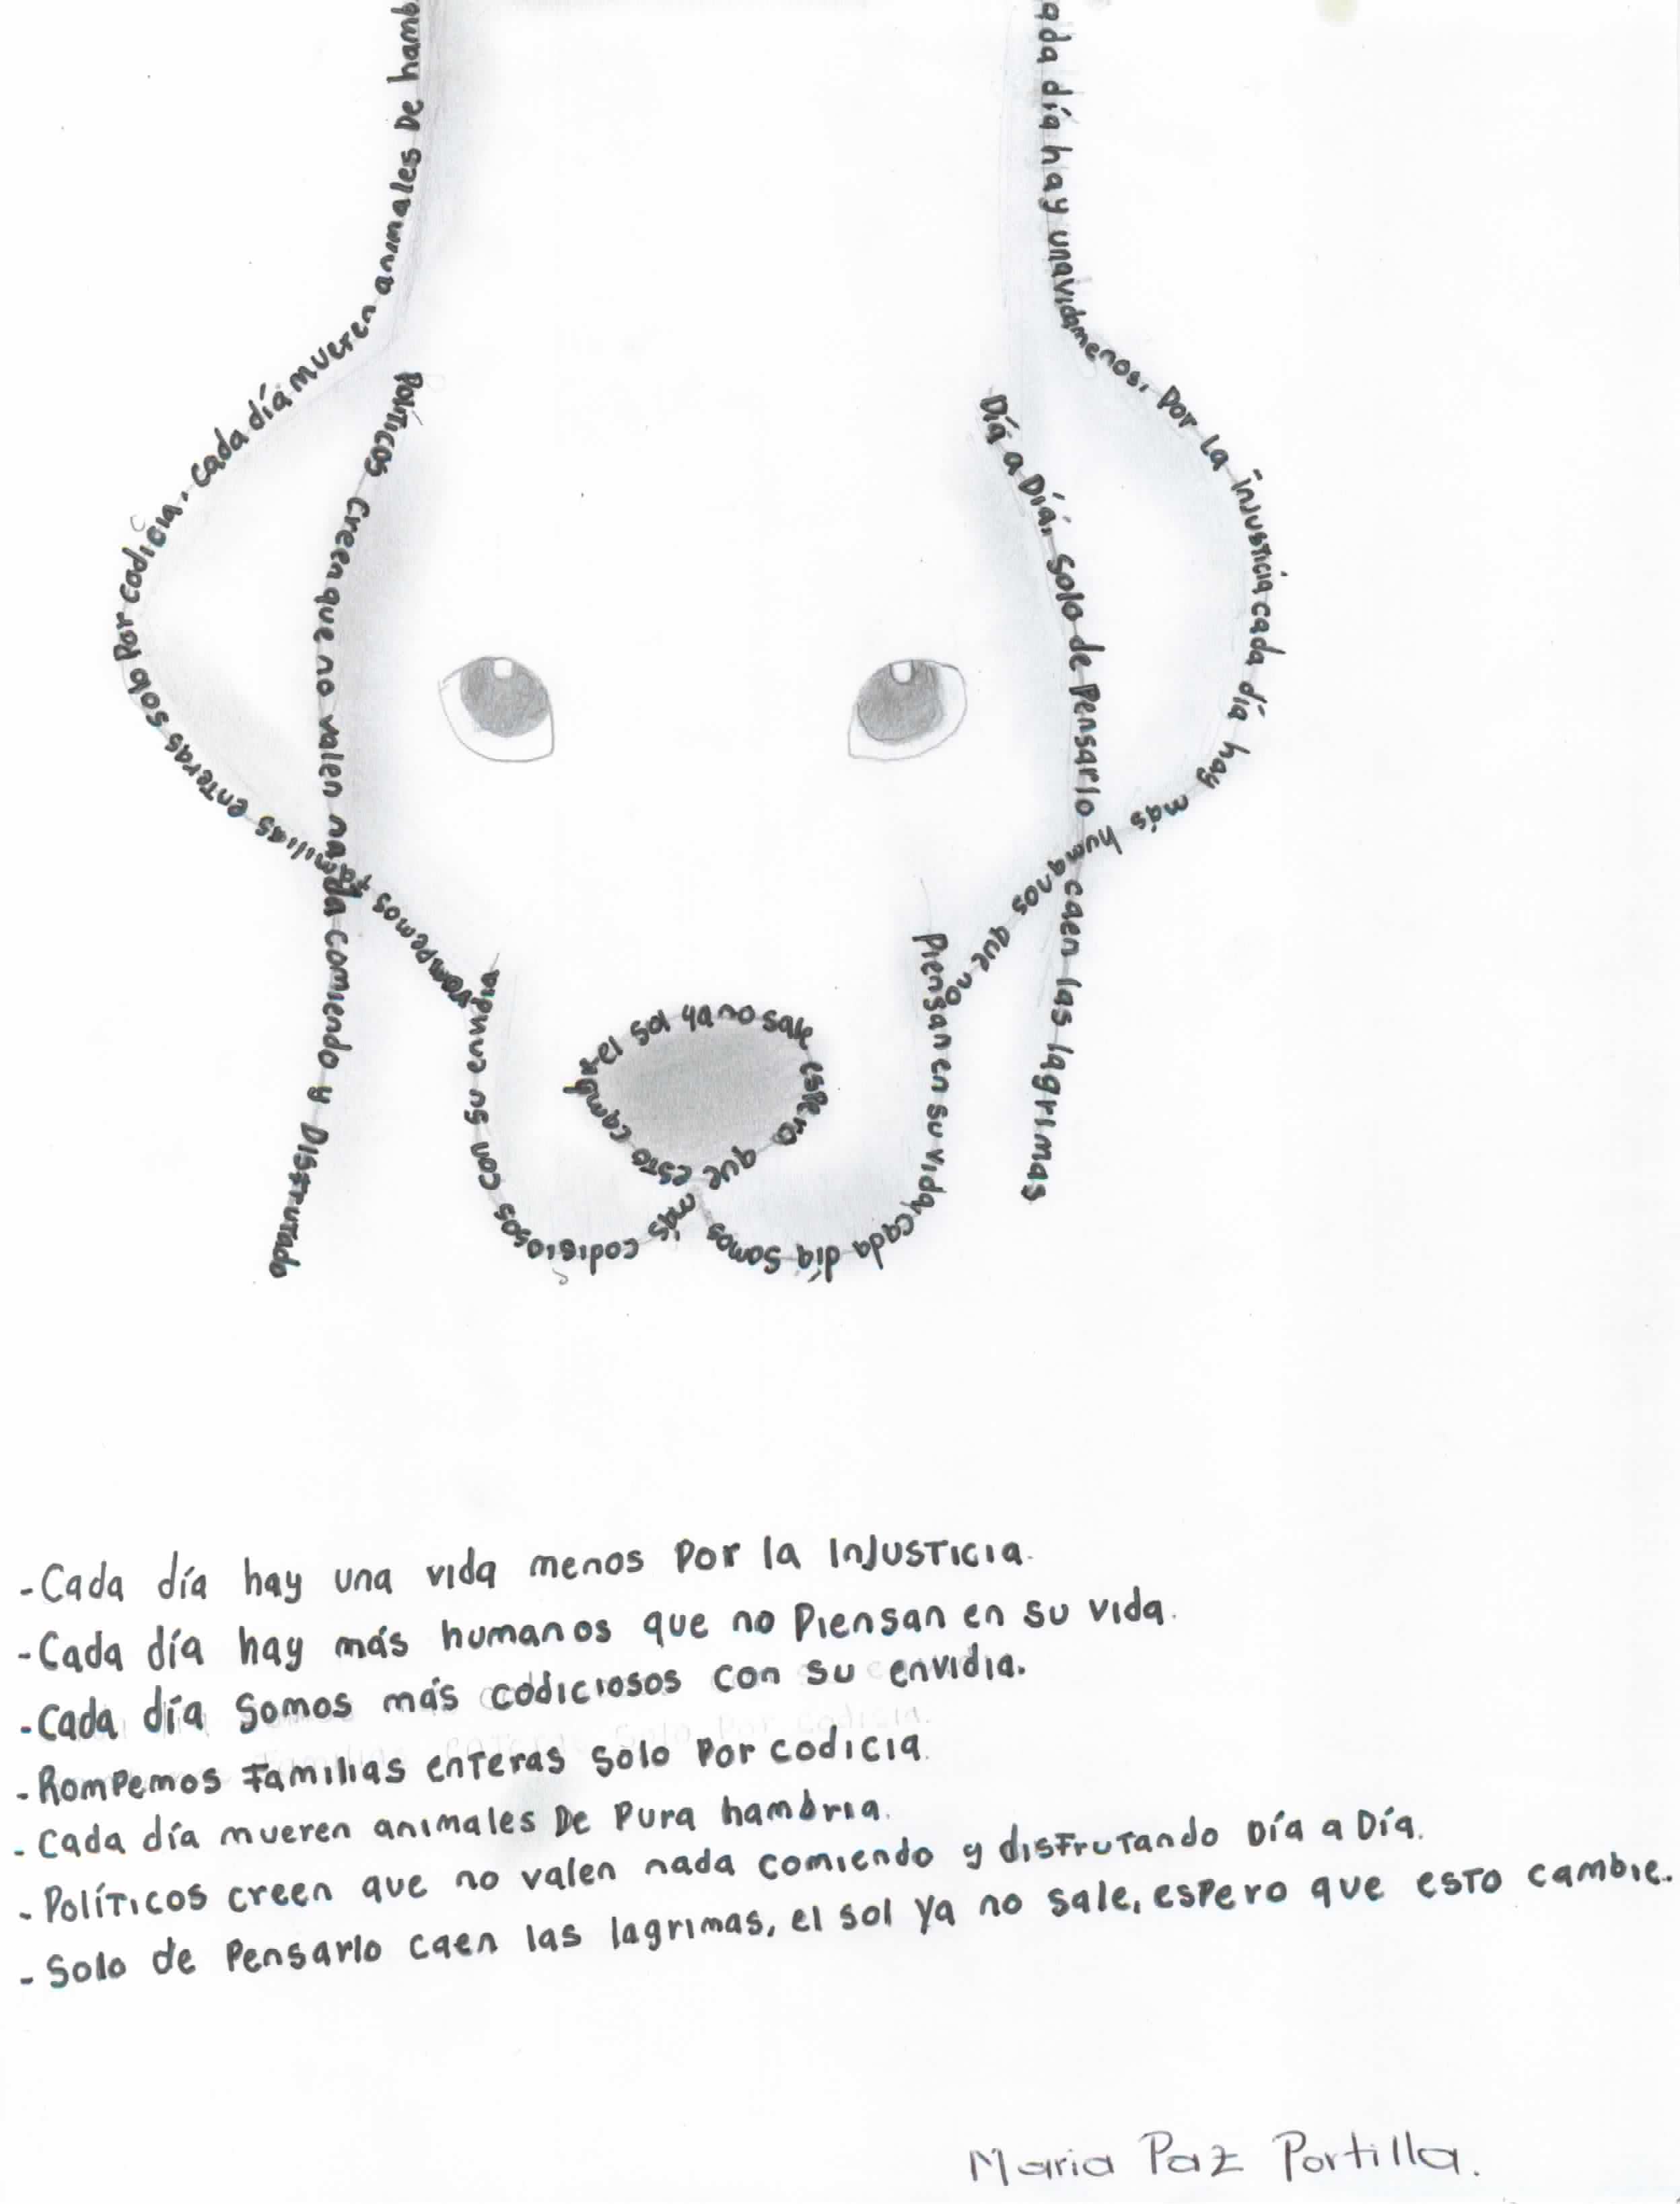 ada día hay una vida menos, por la injusticia cada día hay más humanos que no
Piensan en su vida cada día somos más codisiosos con su envidia
rompemos familias enteras solo por codicia, cada día mueren animales De hamb
Políticos Creen que no valen nada comiendo y Disfrutado
Día a Día, solo de Pensarlo caen las lagrimas
el sol ya no sale espero que esto cambie
-Cada día hay una vida menos por la Injusticia.
-Cada día hay más humanos que no Piensan en su vida.
-Cada día somos más codiciosos con su envidia.
-Rompemos Familias enteras solo por codicia.
-Cada día mueren animales De pura hambria.
-Políticos creen que no valen nada comiendo y disfrutando Día a Día.
-Solo de Pensarlo caen las lagrimas, el sol ya no sale, espero que esto cambie.
Maria Paz Portilla.